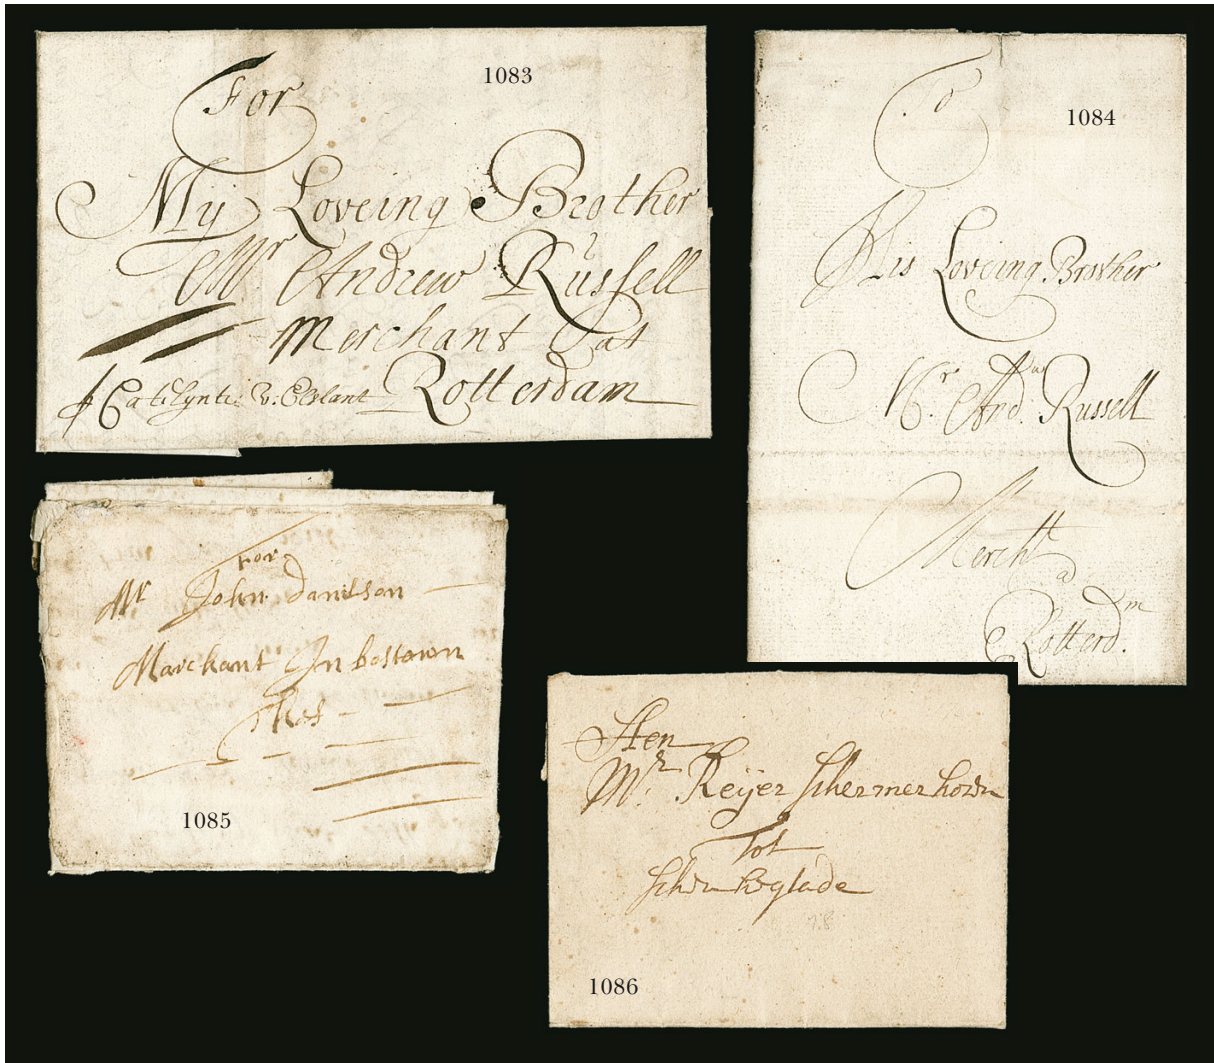 1083
For
My Loveing Brother
Mr Andrew Russell
Merchant att
Rotterdam
1084
To
His Loveing Brother
Mr. And: Russell
Mercht
a
Rotterdm.
For
Mr John Danilson
Marchant In bostown
thes
1085
Aen
Mr. Reijer schermerhorn
Tot
1086